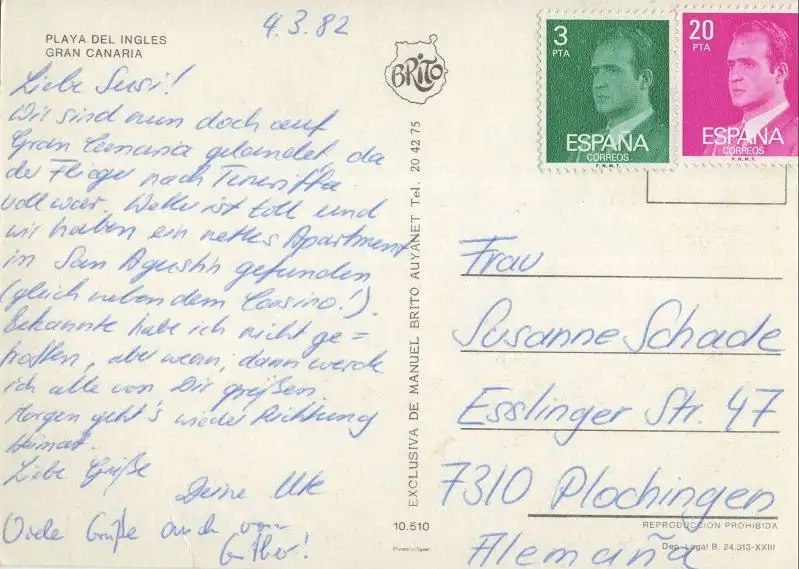 4.3.82
PLAYA DEL INGLES
GRAN CANARIA
Liebe Susi!
Wir sind nun doch auf
Gran Canaria gelandet, da
der Flieger nach Teneriffa
voll war. Wetter ist toll und
wir haben ein nettes Apartment
in San Agustin gefunden
(gleich neben dem Casino!).
Bekannte habe ich nicht ge=
troffen, aber wenn, dann werde
ich alle von Dir grüßen.
Morgen geht's wieder Richtung
Heimat.
Liebe Grüße
Deine Ute
Viele Grüße auch von
BRITO
EXCLUSIVA DE MANUEL BRITO AUYANET Tel. 20 42 75
10.510
Printed in Spain
3
PTA
ESPAÑA
CORREOS
F.N.M.T.
20
PTA
ESPAÑA
CORREOS
F.N.M.T.
Frau
Susanne Schade
Esslinger Str. 47
7310 Plochingen
REPRODUCCION PROHIBIDA
Dep. Legal B. 24.313-XXIII
Alemaña